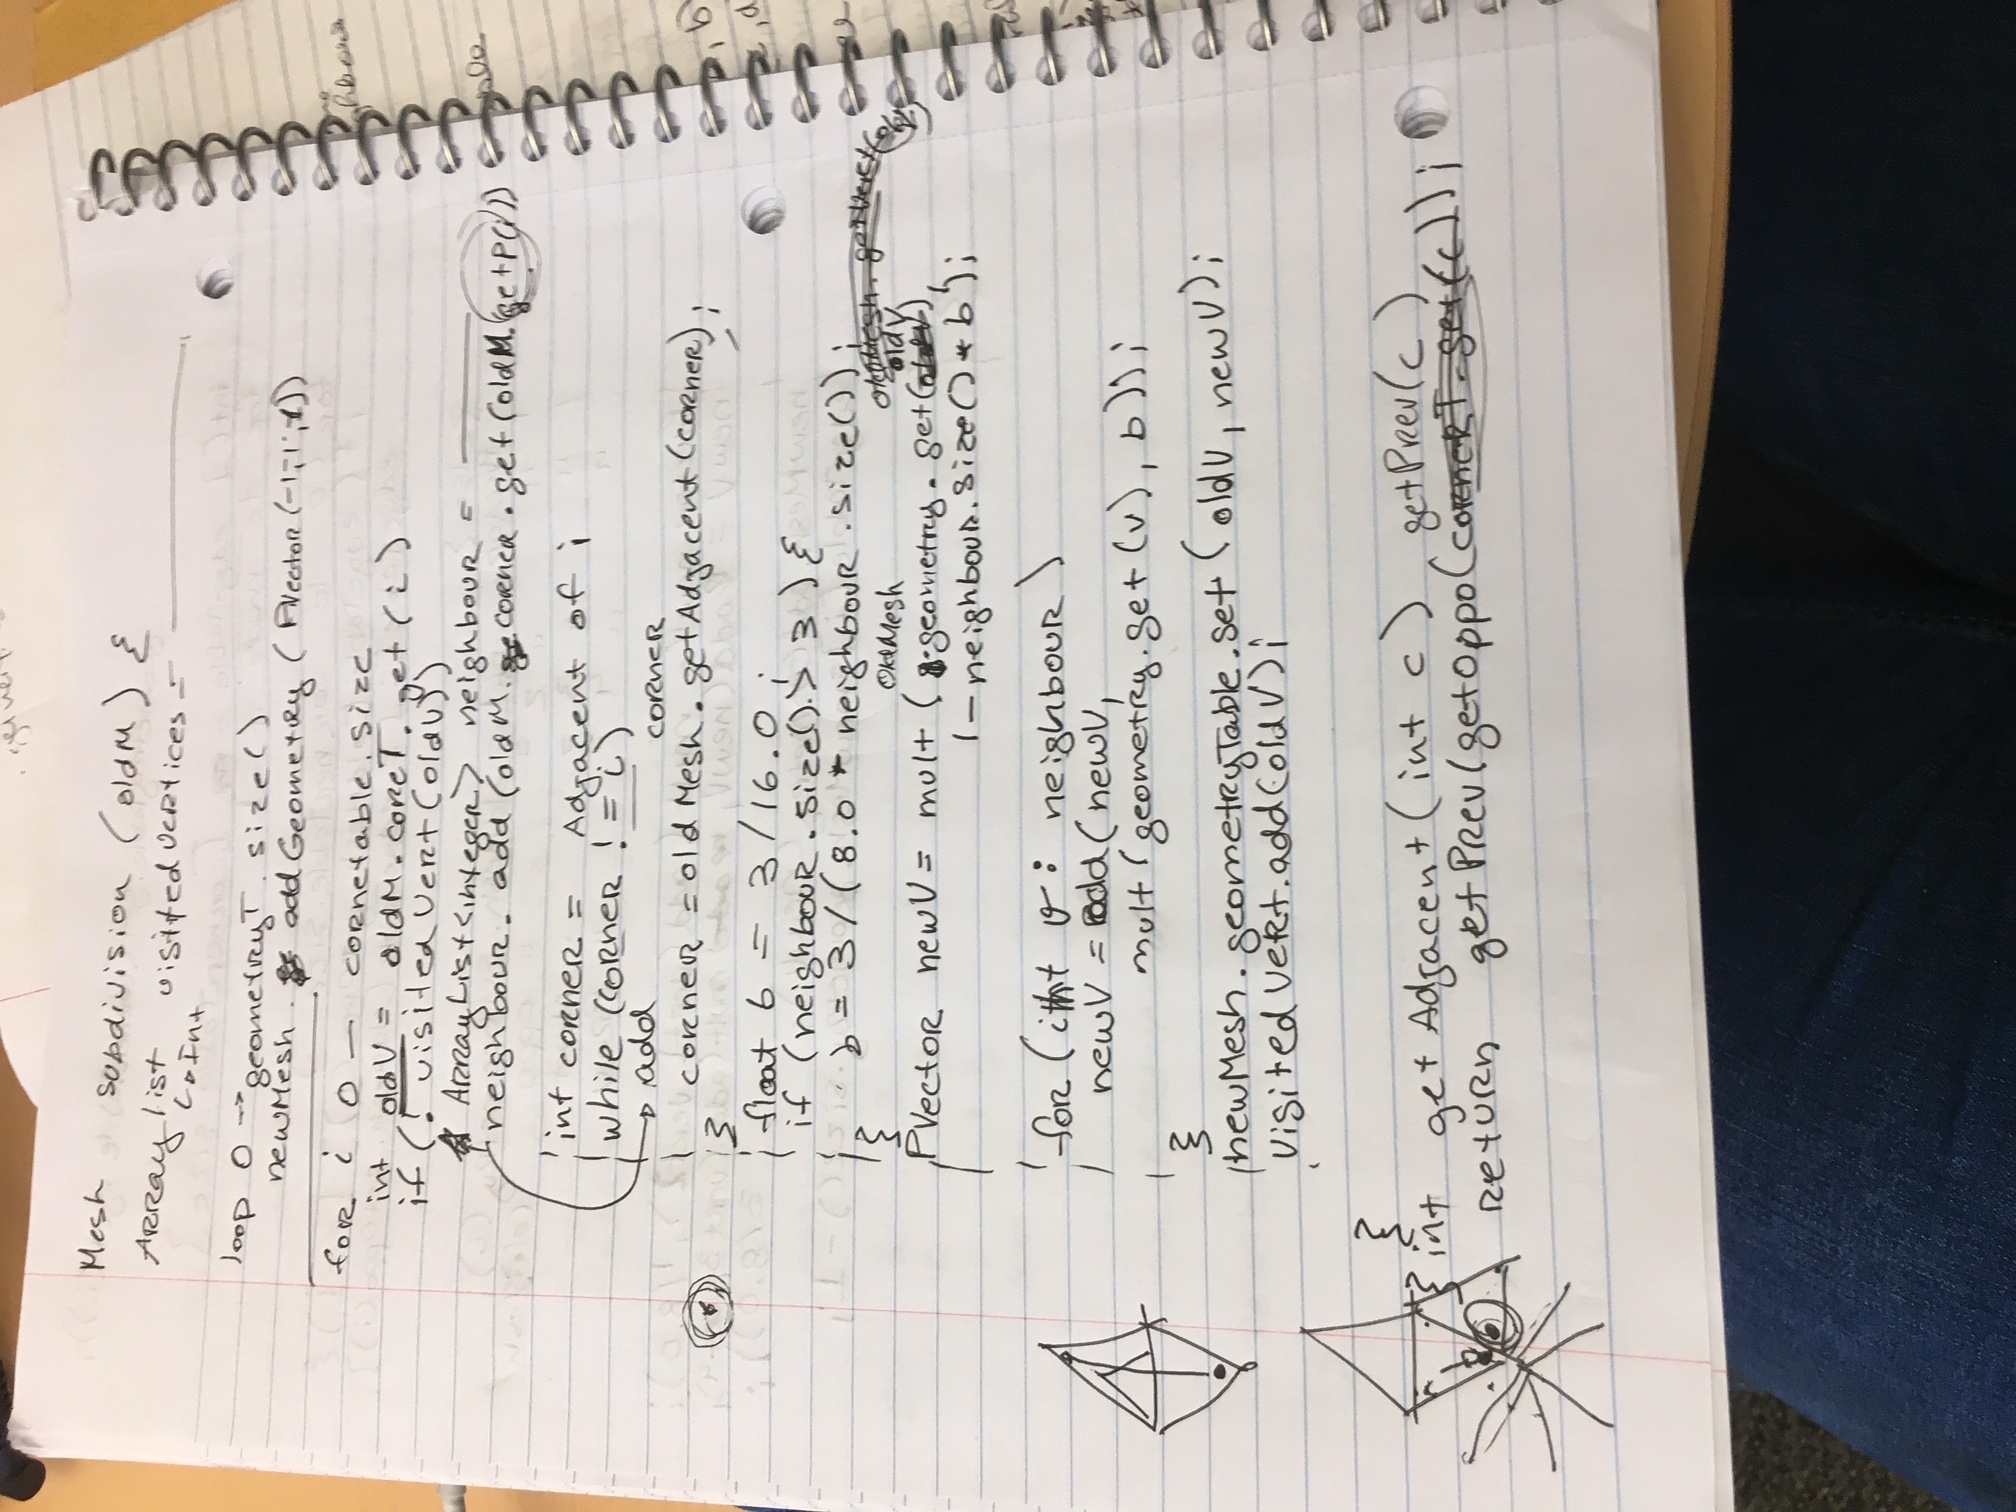 Mesh subdivision (oldM) {
ArrayList visitedvertices =
↳Int
loop 0 → geometryT. size()
newMesh. addGeometry (PVector(-1,-1,-1))
for i 0 — cornetable. size
int oldV = oldM. coreT. get (i)
if (! visited Vert (oldV))
ArrayList<integer> neighbour =
neighbour. add (oldM. corner. get (oldM. getP(i))
int corner = Adjacent of i
while (corner != i)
→ add
corner
corner = old Mesh. getAdjacent (corner);
}
float b = 3/16.0;
if (neighbour. size() > 3) {
b = 3/(8.0 * neighbour. size());
}
oldMesh
oldV
PVector newV = mult (geometry. get(),
1 - neighbour. size() * b);
for (int v : neighbour)
newV = add (newV,
mult (geometry. get (v), b));
}
newMesh. geometryTable. set (oldV, newV);
visited Vert. add(oldV);
}
}
int getAdjacent (int c) getPrev(c)
return getPrev(getOppo(cornerT. get(c)));